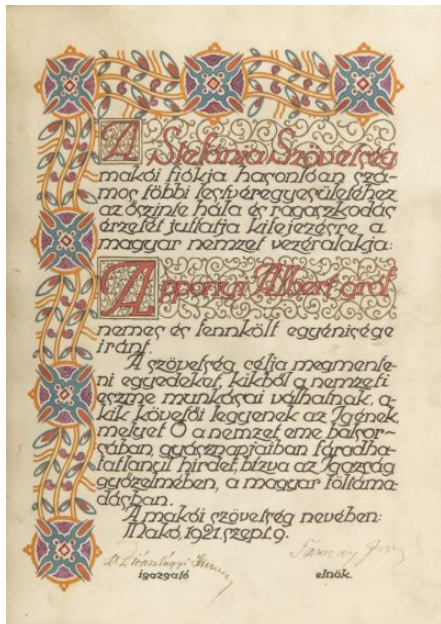 A Stefánia Szövetség
makói fiókja hasonlóan szá-
mos többi testvéregyesületéhez
az őszinte hála és ragaszkodás
érzetét juttatja kifejezésre a
magyar nemzet vezéralakja:
Apponyi Albert gróf
nemes és fennkölt egyénisége
iránt.
A szövetség célja megmente-
ni egyedeket, kikből a nemzeti
eszme munkásai válhatnak, a-
kik követői legyenek az Igének,
melyet Ő a nemzet eme balsor-
sában, gyásznapjaiban fáradha-
tatlanul hirdet, bízva az Igazság
győzelmében, a magyar föltáma-
dásban.
A makói szövetség nevében:
Makó, 1921. szept. 9.
igazgató elnök.